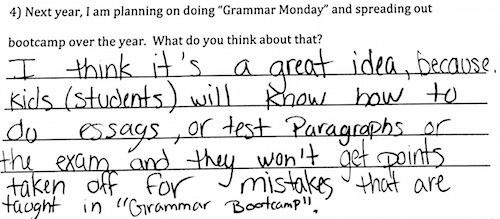 4) Next year, I am planning on doing "Grammar Monday" and spreading out
bootcamp over the year.  What do you think about that?
I think it's a great idea, because.
kids (students) will know how to
do essays, or test Paragraphs or
the exam and they won't get points
taken off for mistakes that are
taught in "Grammar Bootcamp".